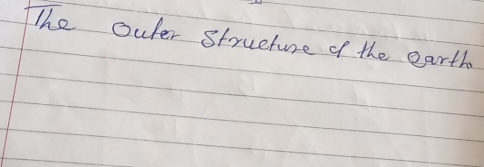 The outer structure of the earth